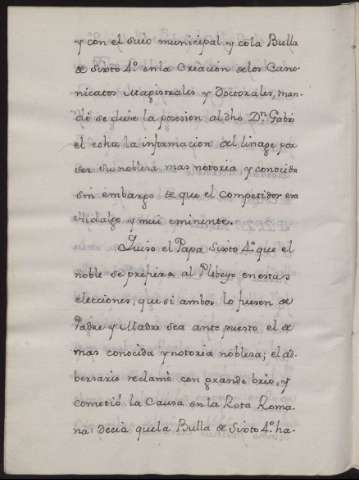 y con el suio municipal y cola Bulla
de Sixto 4º. en la Creacion delos Cano-
nicatos Magistrales y Doctorales, man-
dió se diese la posesion al dho Dn. Gabri
el echa la informacion del linage por
ser su nobleza mas notoria y conocida
sin embargo de que el Competidor era
Hidalgo y mui eminente.
Quiso el Papa Sixto 4º. que el
noble se prefiera al Plebeyo en estas
elecciones, que si ambos lo fueren de
Padre y Madre sea ante puesto el de
mas conocida y notoria noblesa; el ad-
bersario reclamó con grande brio, y
cometió la Causa en la Rota Roma-
na: decia quela Bulla de Sixto 4º. ha-